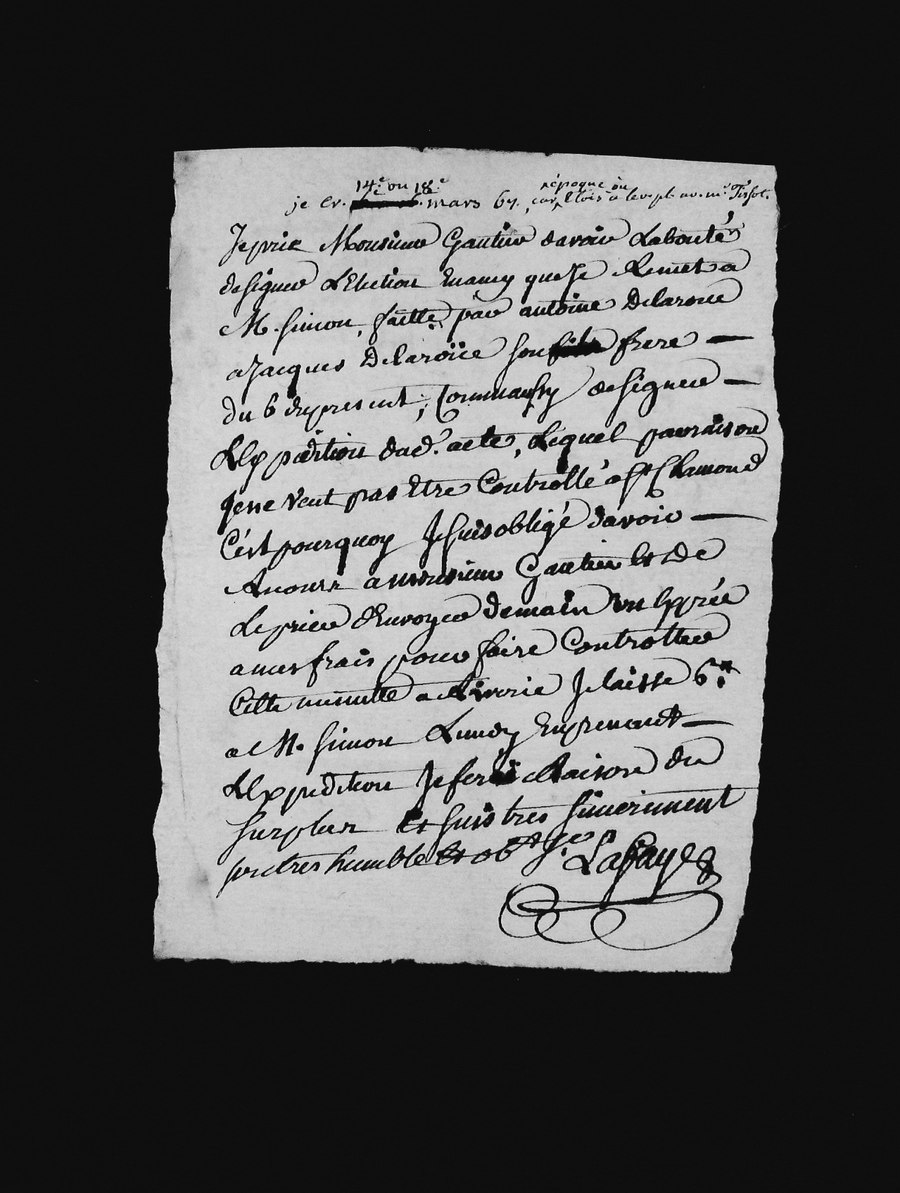 14e. ou 18e. l'époque ou
je cr. mars 67. car, étois à lept av. mr. Tissot.
Je prie Monsieur Gautier davoir La bonté
de signer L'Election quejе Remet a
M. Simon, faitte par antoine Delaroue
a Jacques Delaroüe son frere —
du 6 du present, Comme aussy de signer —
L'Expedition dud. acte, Lequel par raison
qene veut pas Etre Controllé a St Chamond
C'est pourquoy Je suis obligé davoir —
Recours a monsieur Gautier Et De
Le prier d'Envoyer demain un Exprés
a mes frais pour faire Controller
Cette minutte a Je laisse 6tt.
a M. Simon Lundy En prenant —
L'Expedition Je ferai Raison du
surplus Et suis tres sincerement
son tres humble Et obt. sr.
Lafaye